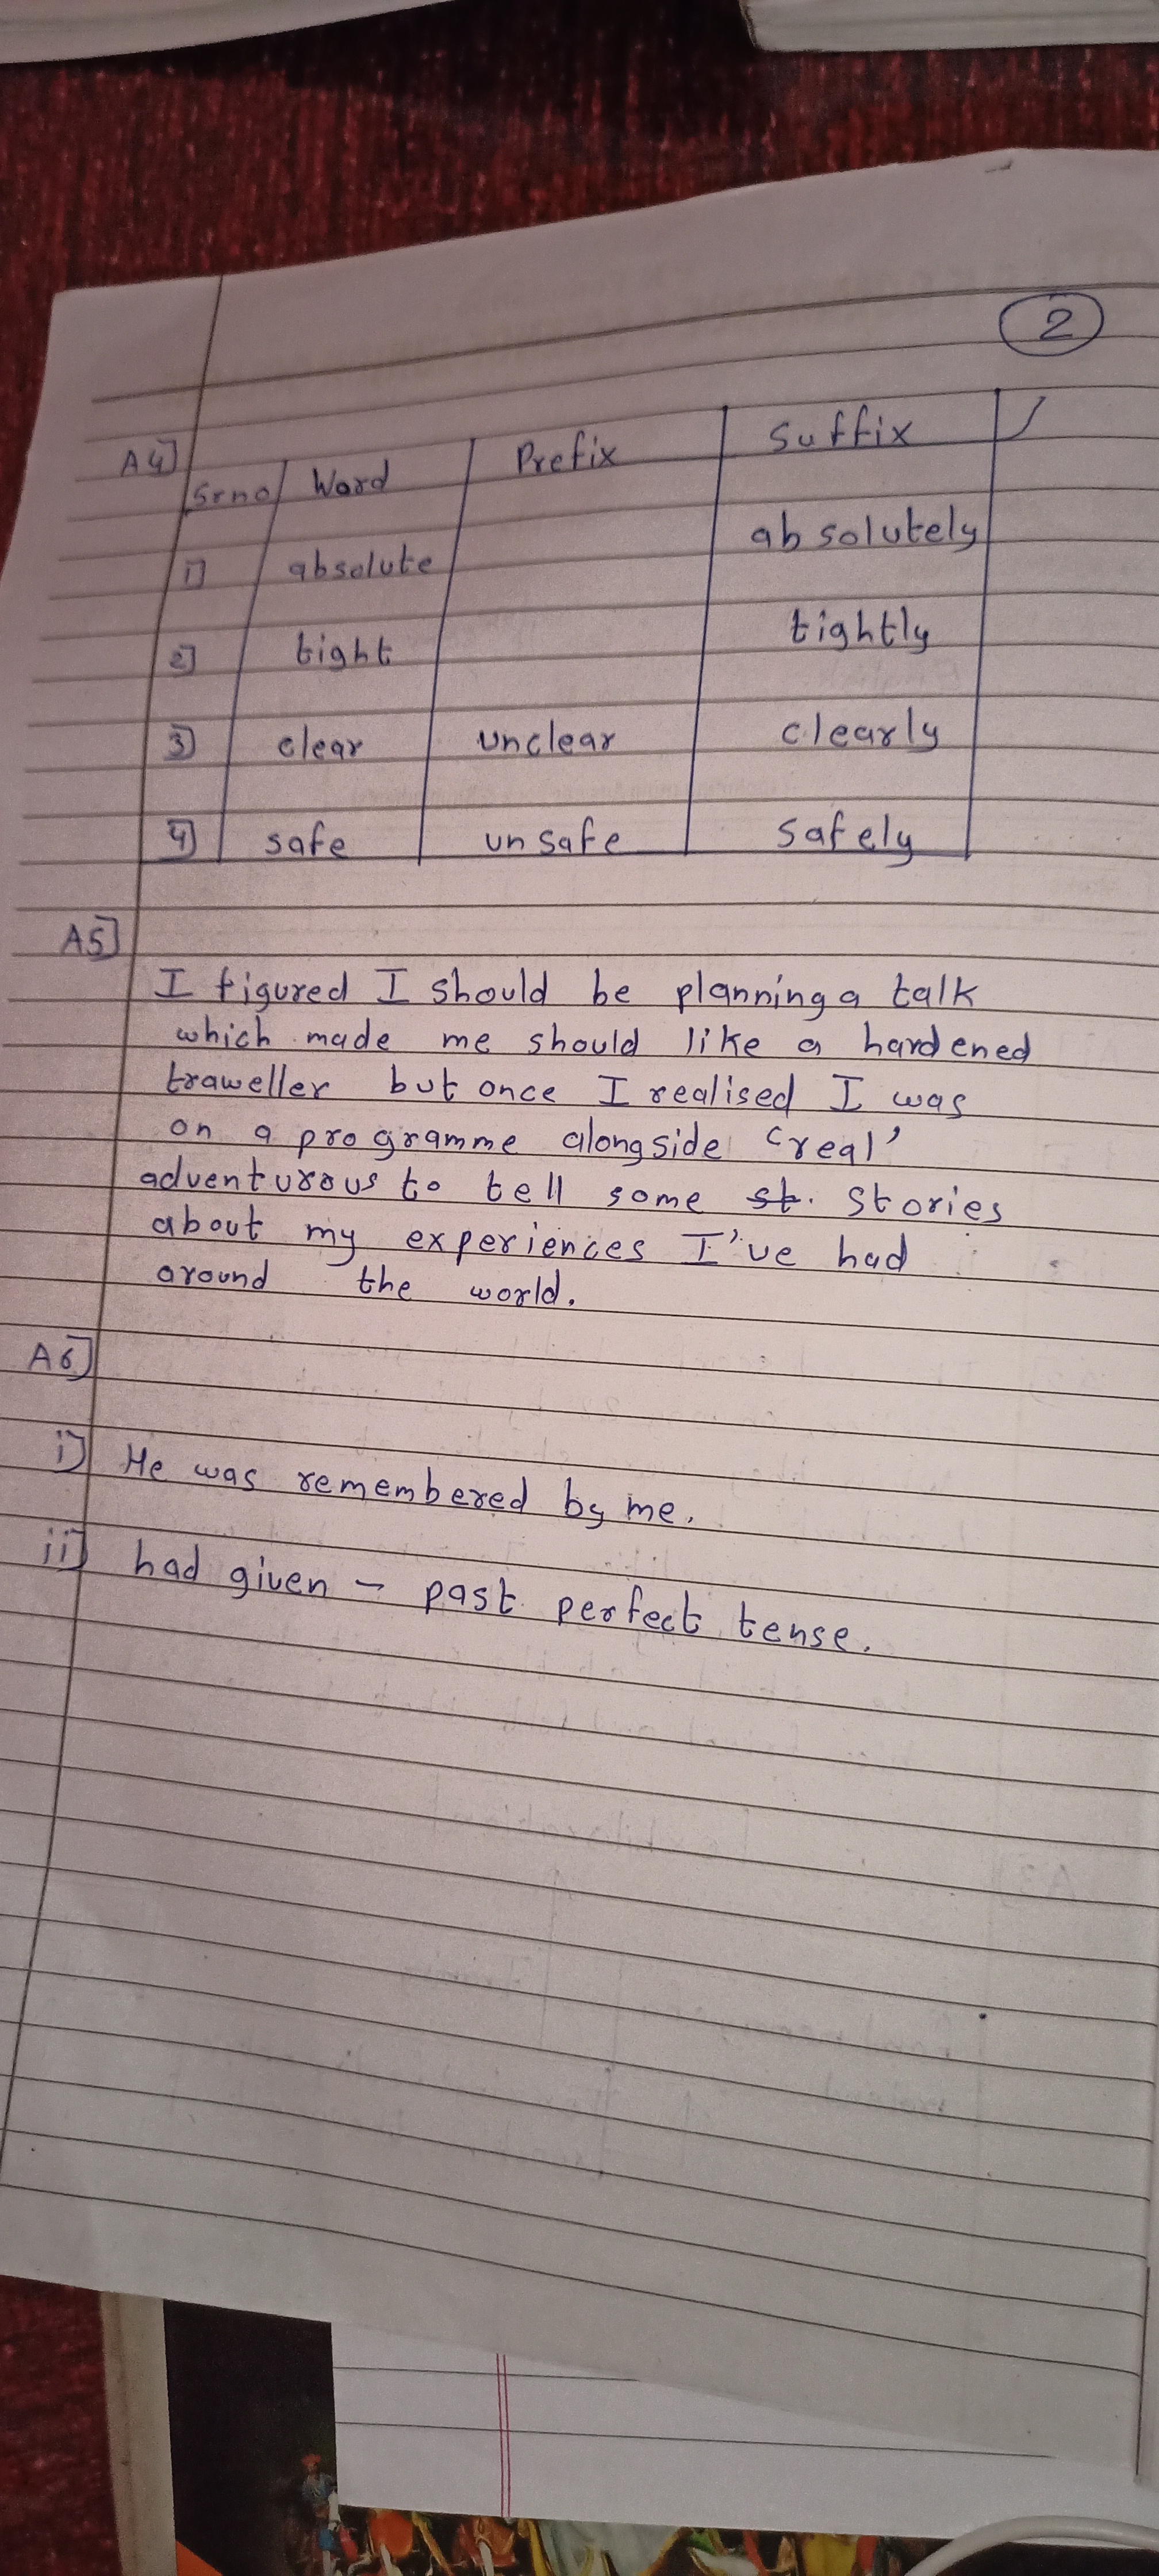 2
A4]
Srno Word Prefix Suffix
1] absolute absolutely
2] tight tightly
3] clear unclear clearly
4] safe unsafe safely
A5]
I figured I should be planning a talk
which made me should like a hardened
traweller but once I realised I was
on a programme alongside 'real'
adventurous to tell some st. stories
about my experiences I've had
around the world.
A6]
i] He was remembered by me.
ii] had given - past perfect tense.